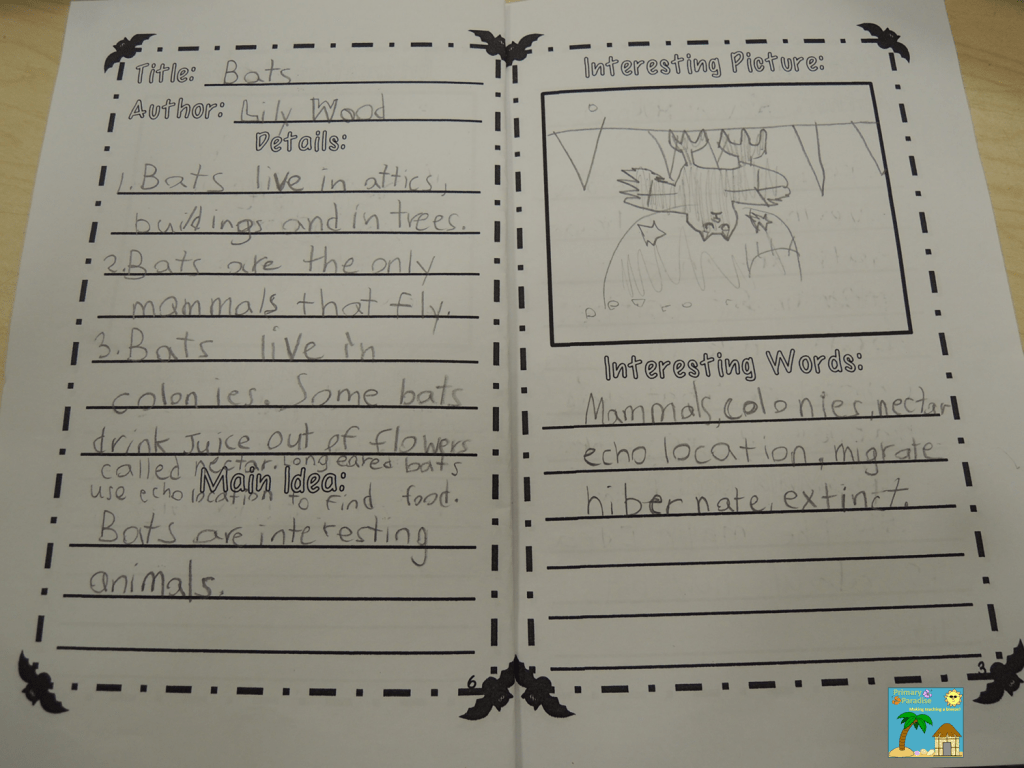 Title: Bats
Author: Lily Wood
Details:
1. Bats live in attics,
buildings and in trees.
2. Bats are the only
mammals that fly.
3. Bats live in
colonies. Some bats
drink juice out of flowers
called nectar. Long eared bats
Main Idea:
use echo location to find food.
Bats are interesting
animals.
6
Interesting Picture:
Interesting Words:
Mammals, colonies, nectar
echo location, migrate
hibernate, extinct.
3
Primary
Paradise
Making teaching a breeze!